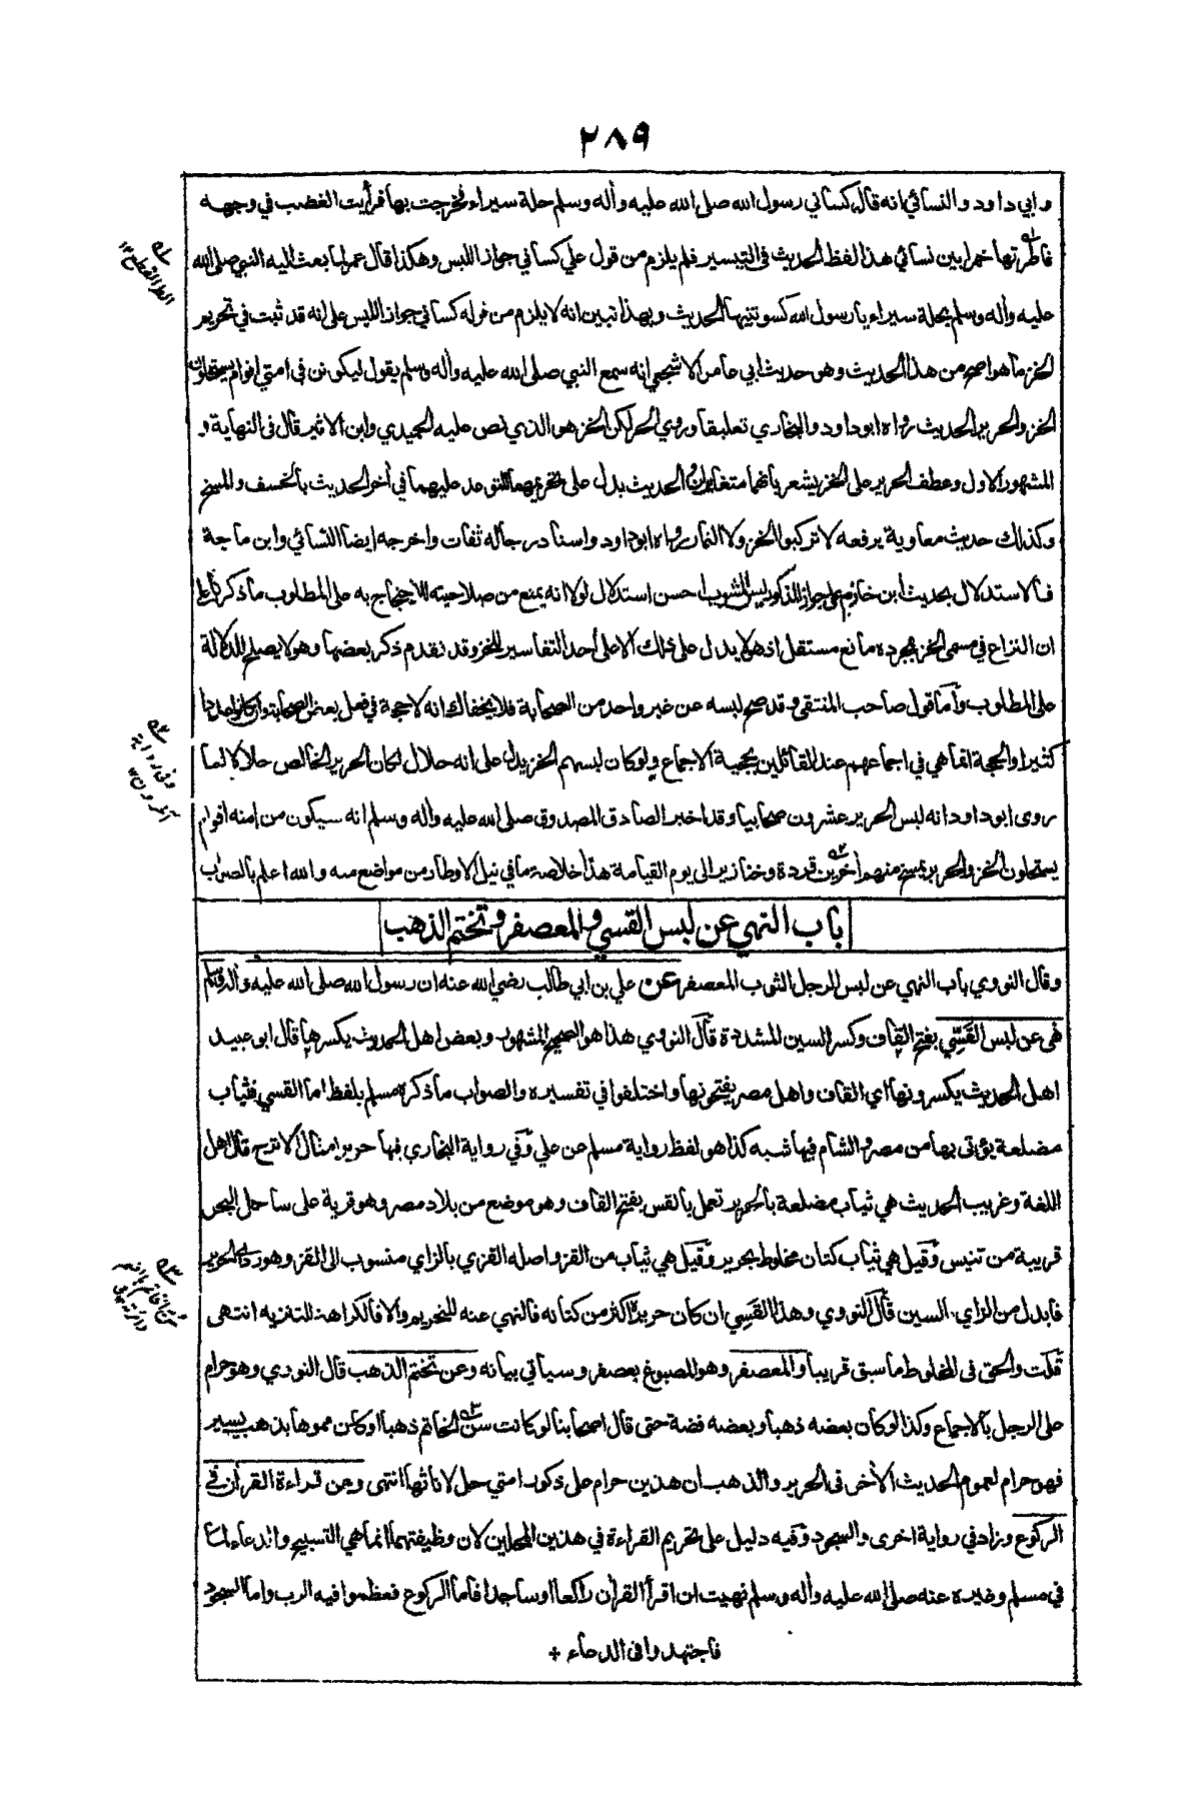 ٢٨٩
وابي داود والنسائي انه قال كساني رسول الله صلى الله عليه واله وسلم حلة سيراء فخرجت بها فرأيت الغضب في وجهه
فاطرتها خمرا بين نسائي هذا لفظ الحديث فى التيسير فلم يلزم من قول علي كساني جواز اللبس وهكذا قال عمر لما بعث اليه النبي صلى الله
عليه واله وسلم بحلة سيراء يا رسول الله كسوتنيها الحديث وبهذا تبين انه لا يلزم من قوله كساني جواز اللبس على انه قد ثبت في تحريم
الخز ما هو اصح من هذا الحديث وهو حديث ابي عامر الاشجعي انه سمع النبي صلى الله عليه واله وسلم يقول ليكونن فى امتي اقوام يستحلون
الخز والحرير الحديث رواه ابوداود والبخاري تعليقا وروي الحر لكن الخز هو الذي نص عليه الحميدي وابن الاثير قال فى النهاية و
المشهور الاول وعطف الحرير على الخز يشعر بانهما متغايران والحديث يدل على تحريمهما للتوعد عليهما في أخر الحديث بالخسف والمسخ
وكذلك حديث معاوية يرفعه لا تركبوا الخز ولا النمار رواه ابوداود واسناد رجاله ثقات واخرجه ايضا النسائي وابن ماجة
فالاستدلال بحديث ابن خازم على جواز المذكور ليس المشوب احسن استدلال لولا انه يمنع من صلاحيته للاحتجاج به على المطلوب ما ذكرنا
ان النزاع في مسمى الخز بمجرده مانع مستقل اذ هو لا يدل على ذلك الا على أحد التفاسير للخز وقد تقدم ذكر بعضها وهو لا يصلح للدلالة
على المطلوب وأما قول صاحب المنتقى وقد صح لبسه عن غير واحد من الصحابة فلا يخفاك انه لا حجة في فعل بعض الصحابة وان كانوا عددا
كثيرا والحجة انما هي في اجماعهم عند القائلين بحجية الاجماع ولو كان لبسهم الخز يدل على انه حلال لكان الحرير الخالص حلالا لما
روى ابوداود انه لبس الحرير عشرون صحابيا وقد اخبر الصادق المصدوق صلى الله عليه واله وسلم انه سيكون من امته اقوام
يستحلون الخز والحرير يمسخ منهم أخرين قردة وخنازير الى يوم القيامة هذا خلاصة ما في نيل الاوطار من مواضع منه والله اعلم بالصواب
باب النهي عن لبس القسي والمعصفر وتختم الذهب
وقال النووي باب النهي عن لبس الرجل الثوب المعصفر عن علي بن ابي طالب رضي الله عنه ان رسول الله صلى الله عليه واله وسلم
نهى عن لبس القَسِّي بفتح القاف وكسر السين المشددة قال النووي هذا هو الصحيح المشهور وبعض اهل الحديث يكسرها قال ابو عبيد
اهل الحديث يكسرونها اي القاف واهل مصر يفتحونها واختلفوا في تفسيره والصواب ما ذكره مسلم بلفظ اما القسي فثياب
مضلعة يؤتى بها من مصر والشام فيها شبه كذا هو لفظ رواية مسلم عن علي وفي رواية البخاري فيها حرير امثال الاترج قال اهل
اللغة وغريب الحديث هي ثياب مضلعة بالحرير تعمل بالقس بفتح القاف وهو موضع من بلاد مصر وهو قرية على ساحل البحر
قريبة من تنيس وقيل هي ثياب كتان مخلوط بحرير وقيل هي ثياب من القز واصله القزي بالزاي منسوب الى القز وهو ردئ الحرير
فابدل من الزاي السين قال النووي وهذا القسي ان كان حريره اكثر من كتانه فالنهي عنه للتحريم والا فالكراهة للتنزيه انتهى
قلت والحق فى المخلوط ما سبق قريبا والمعصفر وهو المصبوغ بعصفر وسيأتي بيانه وعن تختم الذهب قال النووي وهو حرام
على الرجل بالاجماع وكذا لو كان بعضه ذهبا وبعضه فضة حتى قال اصحابنا لو كانت سن الخاتم ذهبا او كان مموها بذهب يسير
فهو حرام لعموم الحديث الأخر فى الحرير والذهب ان هذين حرام على ذكور امتي حل لاناثها انتهى وعن قراءة القرأن في
الركوع وزاد في رواية اخرى والسجود وفيه دليل على تحريم القراءة في هذين المحلين لان وظيفتهما انما هي التسبيح والدعاء لما
في مسلم وغيره عنه صلى الله عليه واله وسلم نهيت ان اقرأ القرأن راكعا او ساجدا فاما الركوع فعظموا فيه الرب واما السجود
فاجتهدوا فى الدعاء +
وفى رواية
آخرون